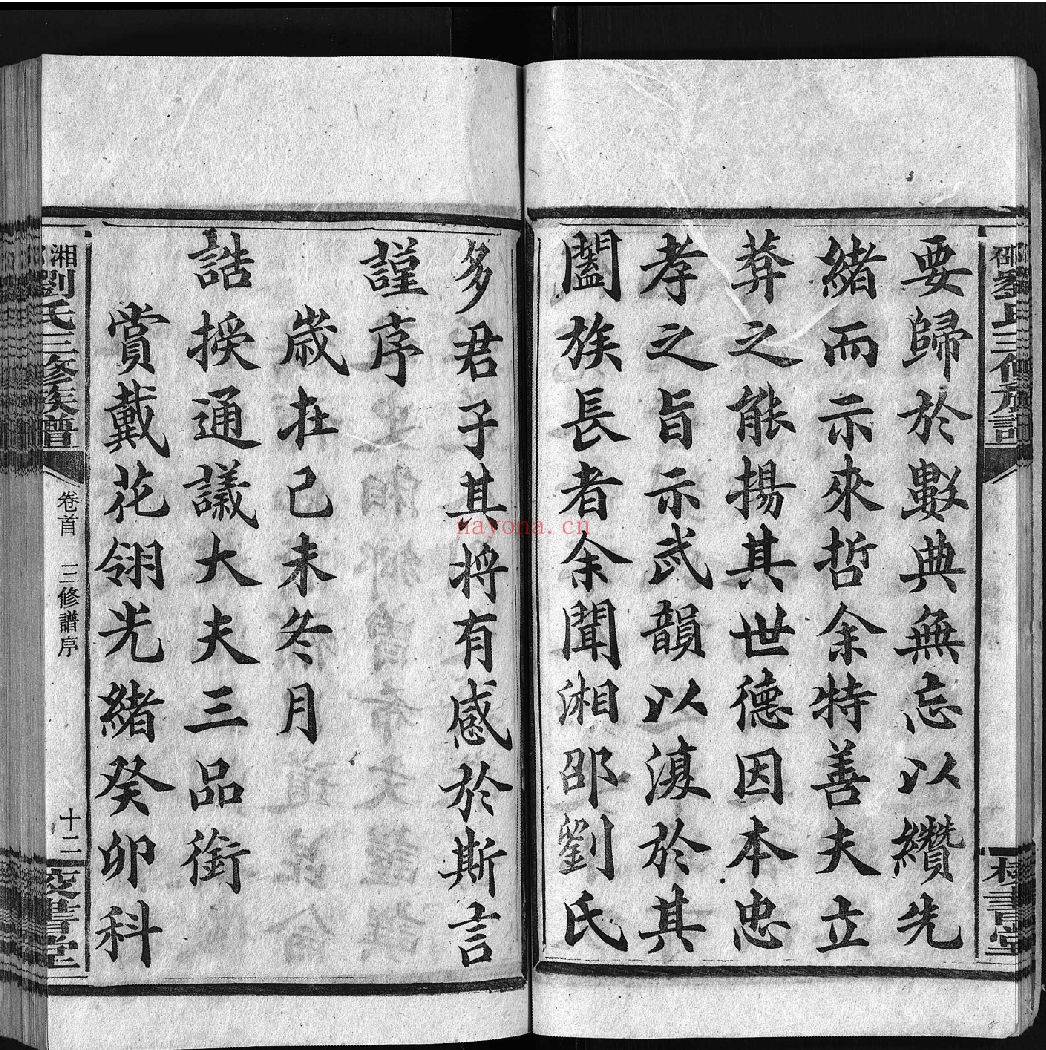 要歸於數典無忘以纘先
緒而示來哲余特善夫立
莽之能揚其世德因本忠
孝之旨示武韻以湲於其
闔族長者余聞湘邵劉氏
多君子其將有感於斯言
謹序
歲在己未冬月
誥授通議大夫三品銜
賞戴花翎光緒癸卯科
湘劉氏三修族譜
卷首 三修譜序
十二
nayona.cn